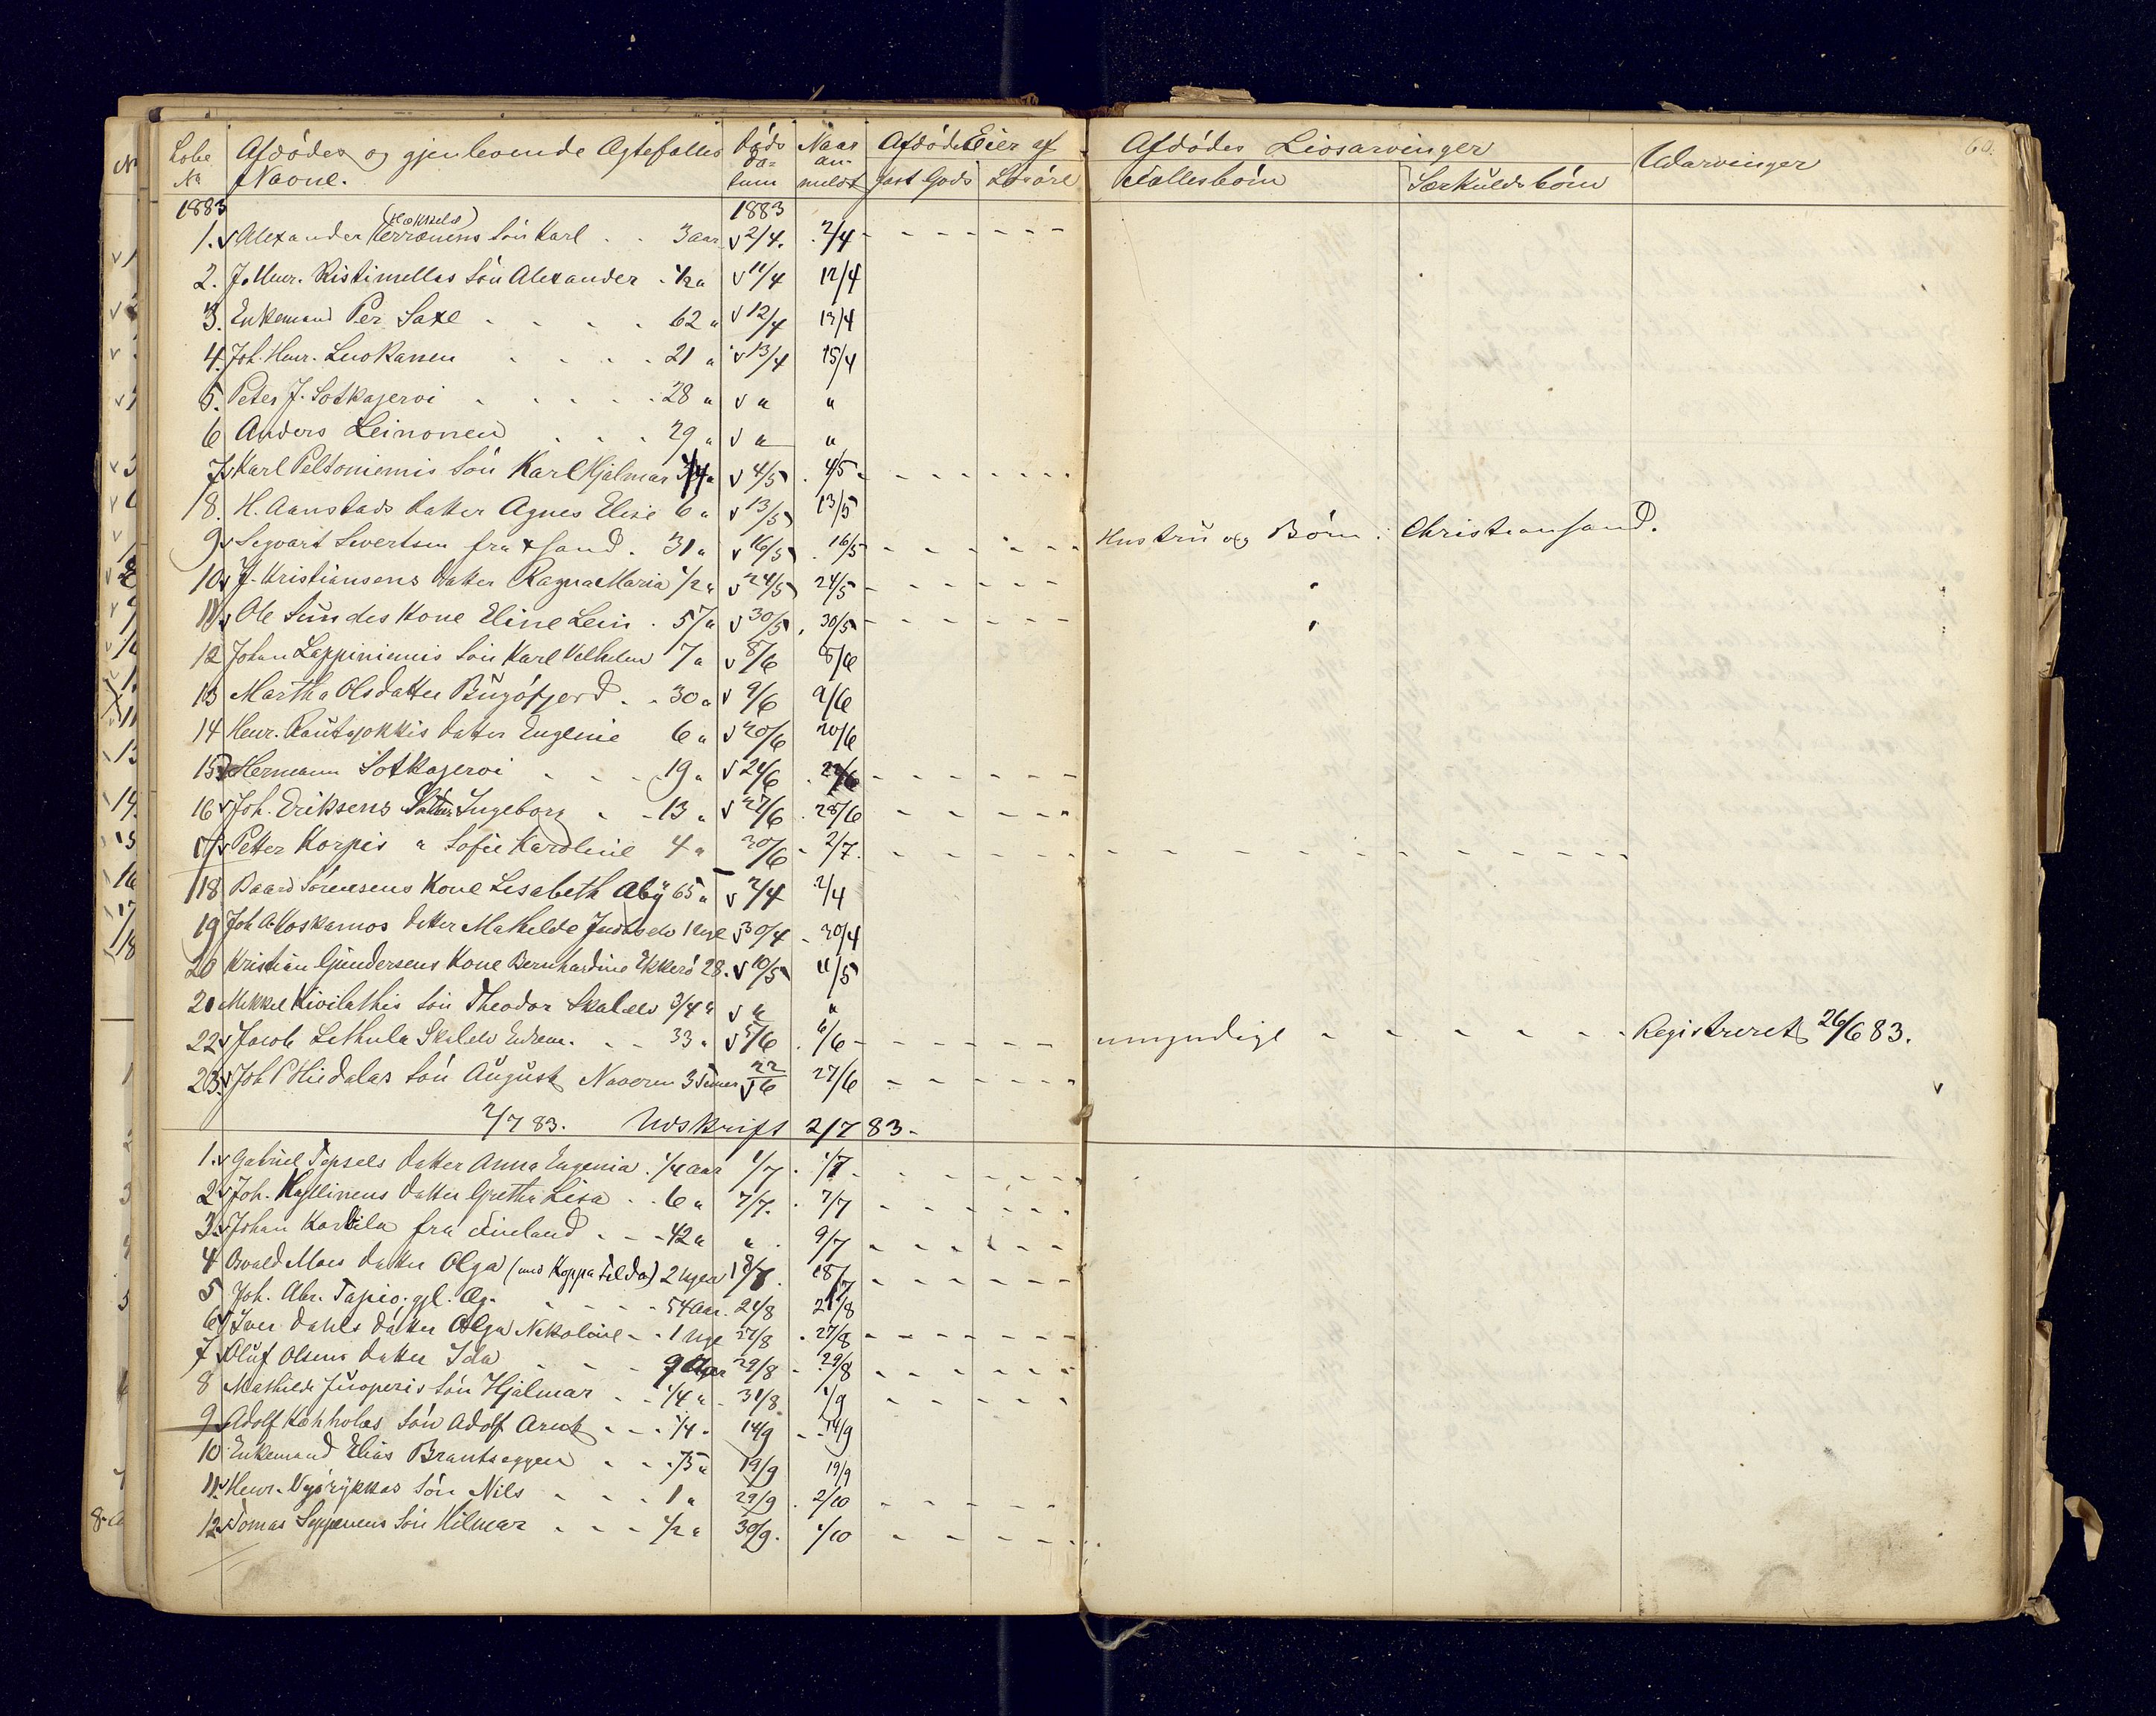 Løbe Afdødes og gjenlevende Ægtefælles Døds Naar Afdøde Eier af Afdødes Livsarvinger Udarvinger 60.
No Navne. da- an-
tum meldt fast Gods Løsøre Fællesbørn Særkuldsbørn
1883 1883
1. Alexander Kerränens Søn Karl 3 aar 2/4. 2/4
2. J. Henr. Ristimellas Søn Alexander 1/2 " 11/4 12/4
3. Enkemand Per Saxe 62 " 12/4 13/4
4. Joh. Henr. Luokanen 21 " 13/4 15/4
5. Peter J. Sotkajervi 28 " " "
6 Anders Leinonen 29 " " "
7 Karl Peltoniemis Søn Karl Hjalmar 4/5 4/5
8. H. Aanstads datter Agnes Elise 6 " 13/5 13/5
9 Sigvart Sivertsen fra xsand. 31 " 16/5 16/5 Hustru og Børn i Christiansand.
10 J. Kristiansens datter Ragna Maria 1/2 " 24/5 24/5
11 Ole Sundes Kone Eline Lein 57 " 30/5 30/5
12 Johan Lappiniemis Søn Karl Vilhelm 7 " 8/6 8/6
13 Martha Olsdatter Bugøfjord 30 " 9/6 9/6
14 Henr. Rautajokkis datter Eugenie 6 " 20/6 20/6
15 Hermann Sotkajervi 19 " 24/6
16 Joh. Eriksens Datter Ingeborg 13 " 27/6 28/6
17 Petter Korpis " Sofie Karoline 4 " 30/6 2/7.
18 Baard Sørensens Kone Lisabeth Aby 65 " 2/4 2/4
19 Joh A Koskamos datter Mathilde 1 Uge 30/4 30/4
20 Kristian Gundersens Kone Bernhardine Ekkerø 28. 10/5 11/5
20 Mikkel Kivilathis Søn Theodor Skalelv 3/4 " " "
22 Jacob Lethula Skalelv 33 " 5/6 6/6 umyndige Registreret 26/6 83.
23. Joh P Hiedalas Søn August 3 Timer 22/6 27/6
2/7 83. Udskrift 2/7 83.
1. Gabriel Tapsels datter Anna Eugenia 1/4 aar 1/7 1/7
2 Joh. Kyllinens datter Gretha Lisa 6 " 7/7. 7/7
3. Johan Karbila fra Finland 42 " " 9/7
4 Osvald Moes datter Olga 2 Uger 18/7
5 Joh. Abr. Tapio. 54 aar. 21/8
6 Iver Dahls datter Olga Nikoline 1 Uge 27/8 27/8
7 Oluf Olsens datter Ida 29/8 29/8
8 Mathilde Juoperis Søn Hjalmar 1/4 " 31/8 1/9
9 Adolf Søn Adolf Arnt 1/4 " 14/9 14/9
10 Enkemand Elias Brantseggen 75 " 19/9 19/9
11 Henr. Søn Nils 1 " 29/9 2/10
12 Tomas Seppänens Søn Hilmar 1/2 " 30/9. 1/10